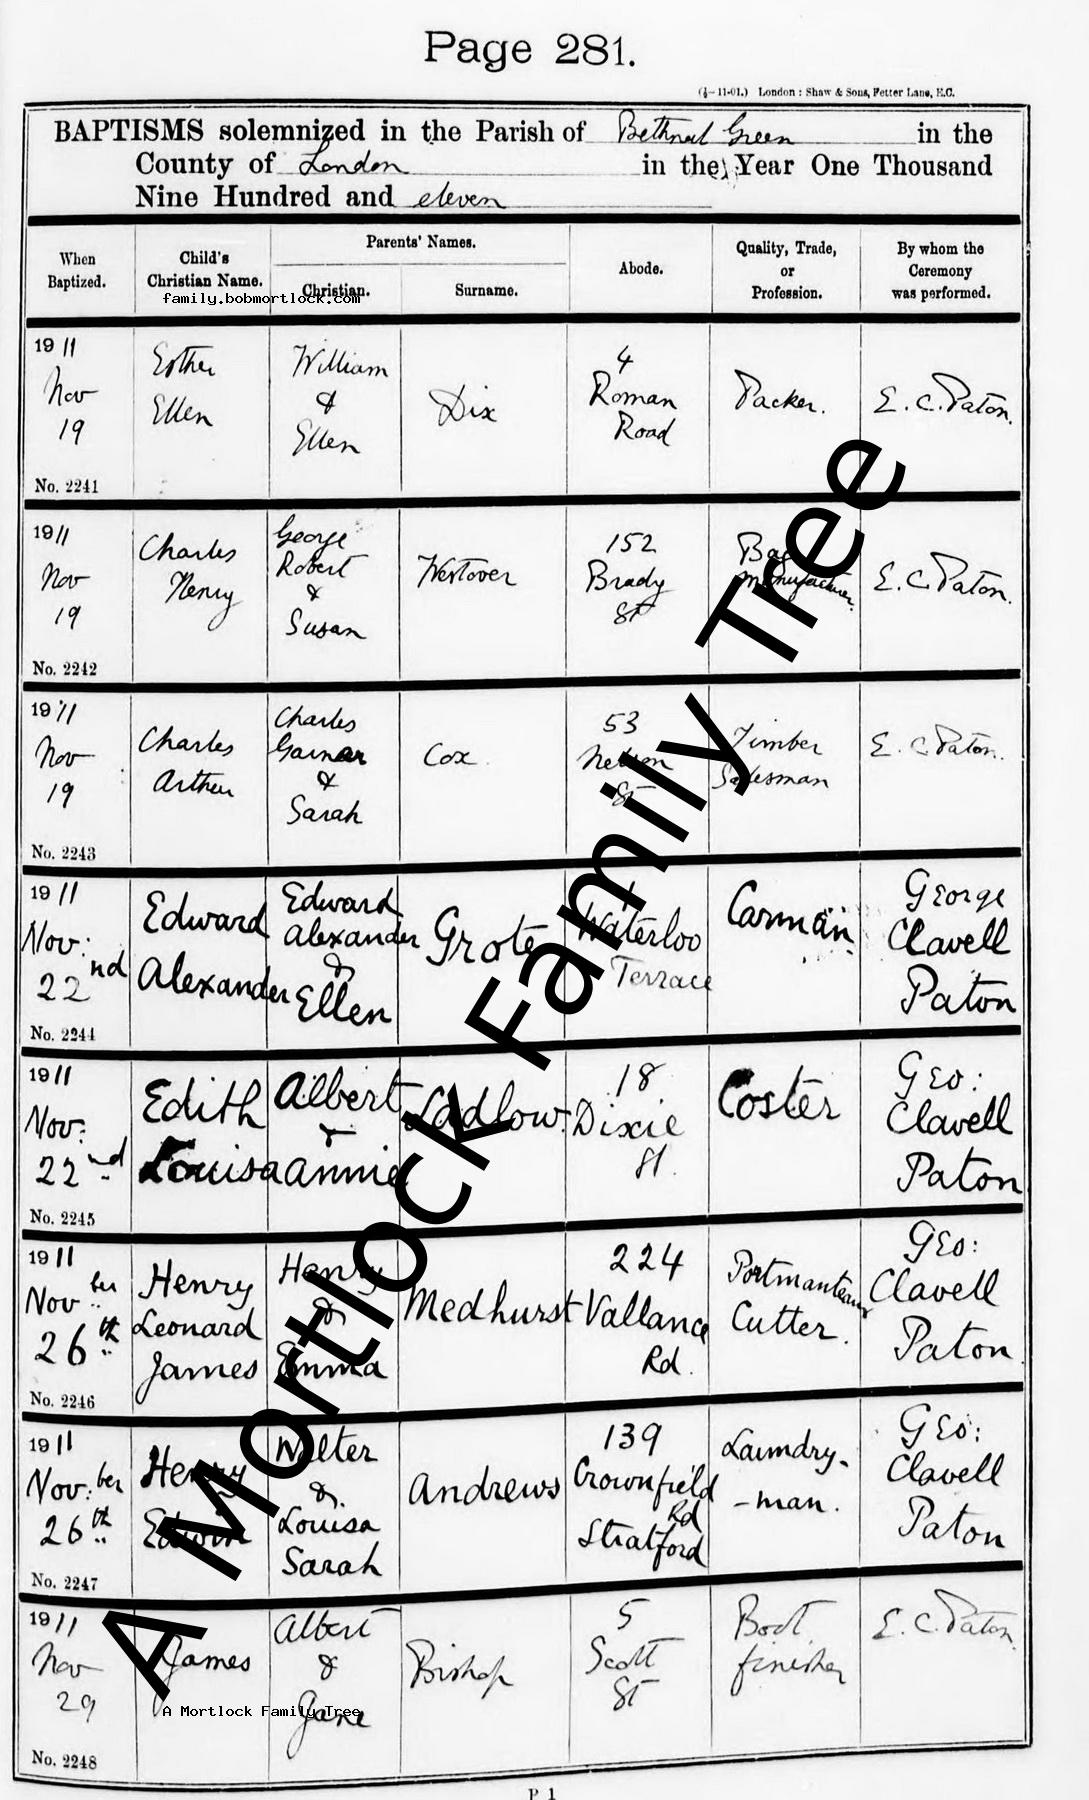 Page 281.
(½–11-01.) London : Shaw & Sons, Fetter Lane, E.C.
BAPTISMS solemnized in the Parish of Bethnal Green in the
County of London in the Year One Thousand
Nine Hundred and eleven
When Baptized.
Child's Christian Name.
Parents' Names.
Christian.
Surname.
Abode.
Quality, Trade, or Profession.
By whom the Ceremony was performed.
family.bobmortlock.com
1911
Nov
19
No. 2241
Esther
Ellen
William
&
Ellen
Dix
4
Roman
Road
Packer.
E. C. Paton.
1911
Nov
19
No. 2242
Charles
Henry
George
Robert
&
Susan
Westover
152
Brady
St
Bag
Manufacturer.
E. C. Paton.
1911
Nov
19
No. 2243
Charles
Arthur
Charles
Garner
&
Sarah
Cox
53
Nelson
St
Timber
Salesman
E. C. Paton.
1911
Nov:
22nd
No. 2244
Edward
Alexander
Edward
Alexander
&
Ellen
Grote
Waterloo
Terrace
Carman
George
Clavell
Paton
1911
Nov:
22nd
No. 2245
Edith
Louisa
Albert
&
Annie
Ladlow.
18
Dixie
St.
Coster
Geo:
Clavell
Paton
1911
Novber
26th
No. 2246
Henry
Leonard
James
Henry
&
Emma
Medhurst
224
Vallance
Rd.
Portmanteau
Cutter.
Geo:
Clavell
Paton.
1911
Nov:ber
26th
No. 2247
Henry
Edwin
Walter
&
Louisa
Sarah
Andrews
139
Crownfield
Rd
Stratford
Laundry-
-man.
Geo:
Clavell
Paton
1911
Nov
29
No. 2248
James
Albert
&
Jane
Bishop
5
Scott
St
Boot
finisher
E. C. Paton.
A Mortlock Family Tree
A Mortlock Family Tree
P 1